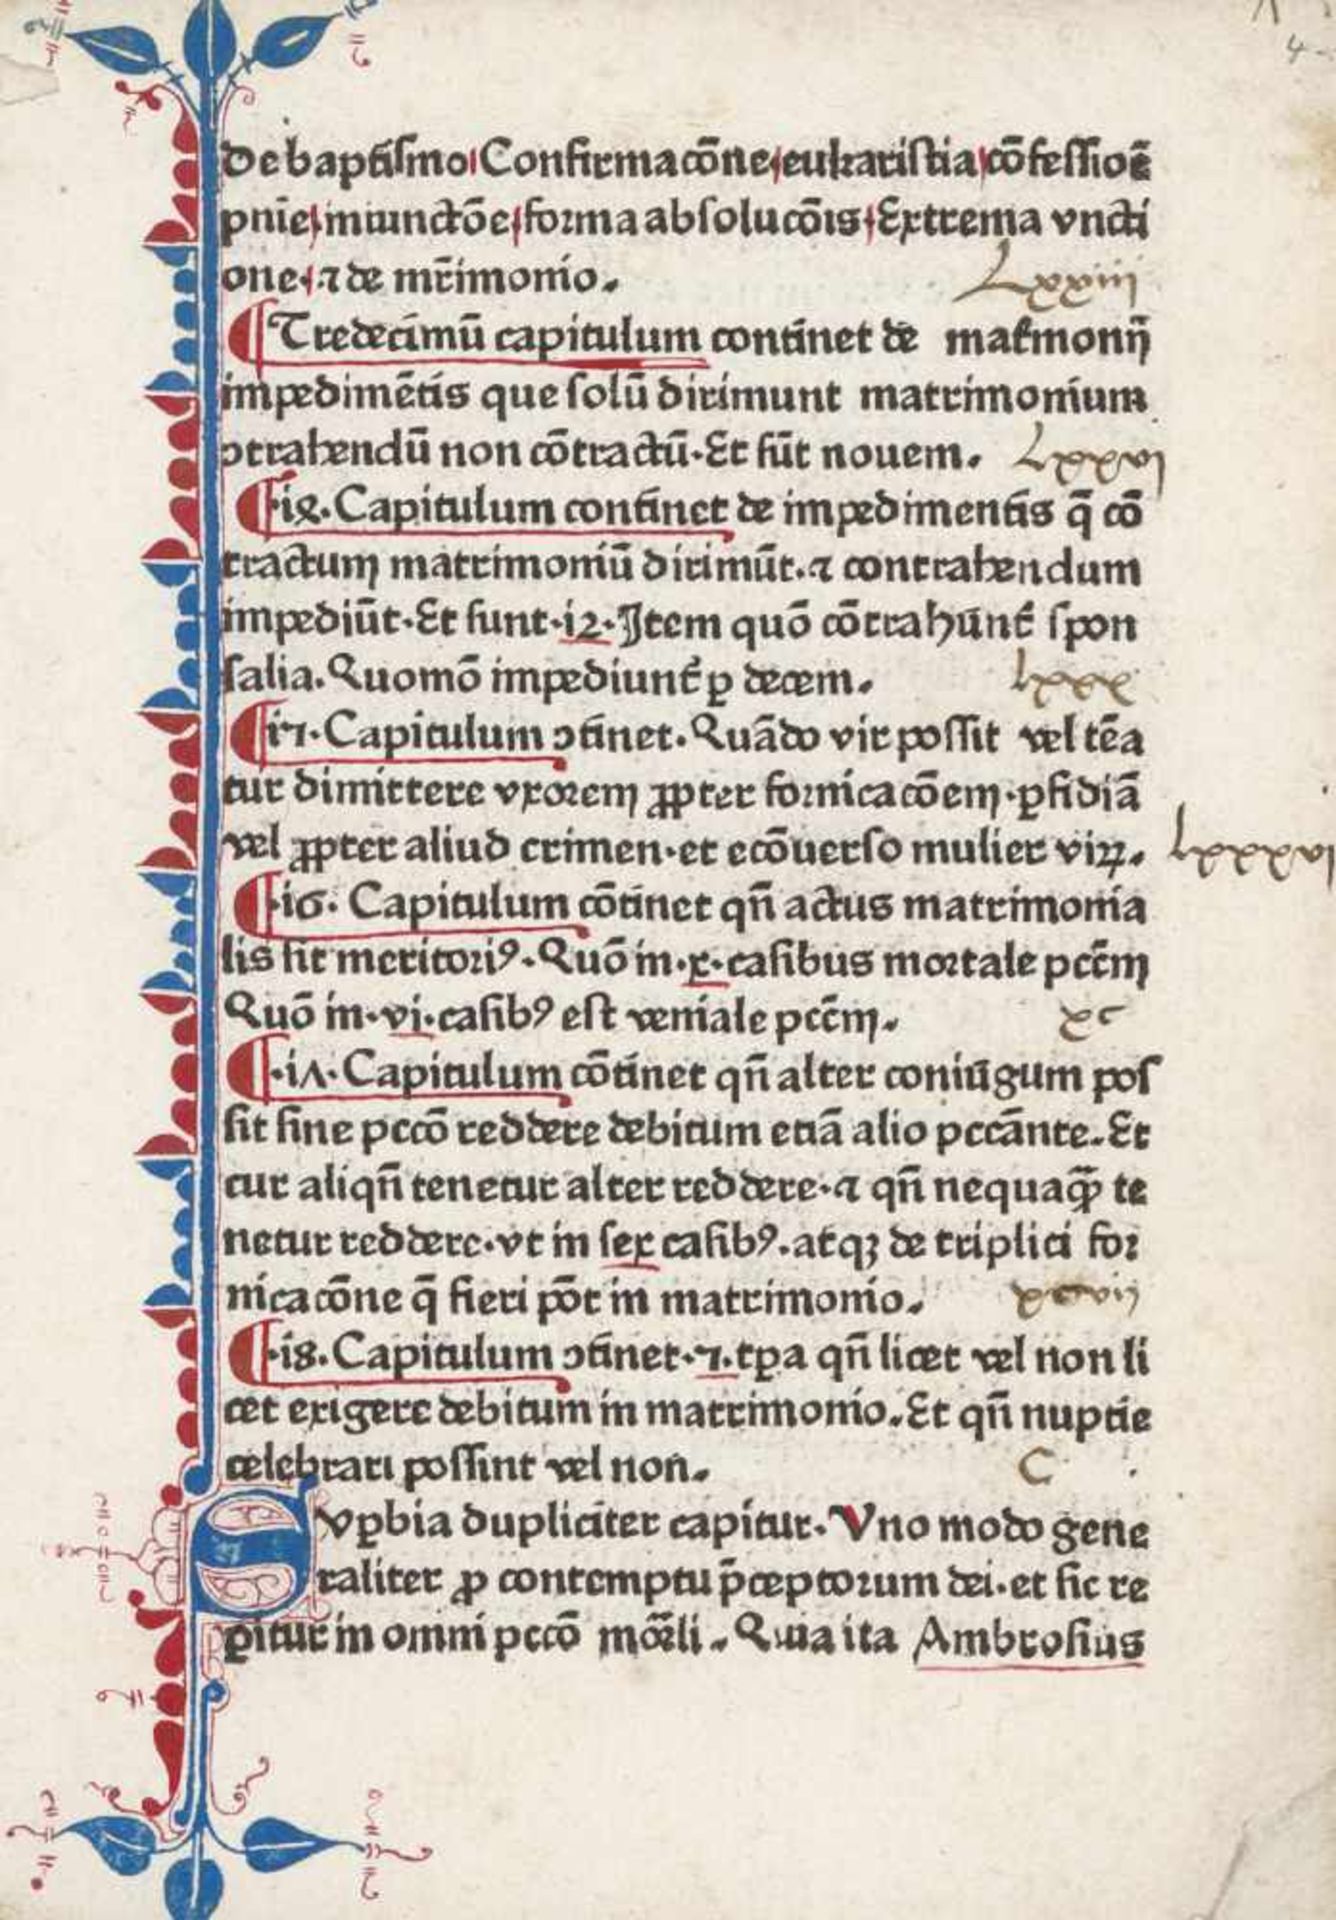 4
De baptismo Confirmacōne eukaristia cōfessioē
pnīe iniunctōe forma absolucōis Extrema vncti
one ⁊ de mr̄imonio.
Lxxiiii
Tredecimū capitulum continet de mat̄monij
impedimētis que solū dirimunt matrimonium
ↄtrahendū non cōtractū. Et sūt nouem.
lxxxvi
·iꝝ. Capitulum continet de impedimentis q̄ cō
tractum matrimoniū dirimūt. ⁊ contrahendum
impediūt. Et sunt ·i2· Item quō cōtrahūnt̄ spon
salia. Quomō impediunt̄ ꝑ decem.
lxxx
·i7· Capitulum ↄtinet. Quādo vir possit vel tēa
tur dimittere vxorem ꝓpter fornicacōem ꝑfidiā
vel ꝓpter aliud crimen et ecōuerso mulier viꝝ.
·i6· Capitulum cōtinet qn̄ actus matrimonia
lis sit meritoriꝰ. Quō in ·x· casibus mortale pctm̄
Quō in ·vi· casibꝰ est veniale pctm̄.
xc
·iΛ· Capitulum cōtinet qn̄ alter coniūgum pos
sit sine pccō reddere debitum etiā alio pccānte. Et
cur aliqn̄ tenetur alter reddere ⁊ qn̄ nequaꝙ̄ te
netur reddere vt in sex casibꝰ. atqꝫ de triplici for
nicacōne q̄ fieri pōt in matrimonio.
xcvii
·i8. Capitulum ↄtinet ·7· tꝑa qn̄ licet vel non li
cet exigere debitum in matrimonio. Et qn̄ nuptie
celebrari possint vel non.
C
Svꝑbia dupliciter capitur. Vno modo gene
raliter ꝓ contemptu p̄ceptorum dei. et sic re
ꝑitur in omni pccō mor̄li. Quia ita Ambrosius